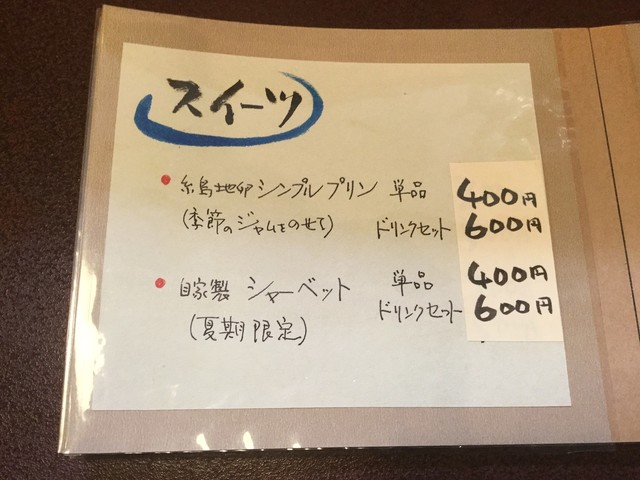 スイーツ
糸島地卵シンプルプリン 単品 400円
(季節のジャムをのせて) ドリンクセット 600円
自家製 シャーベット 単品 400円
ドリンクセット 600円
(夏期限定)